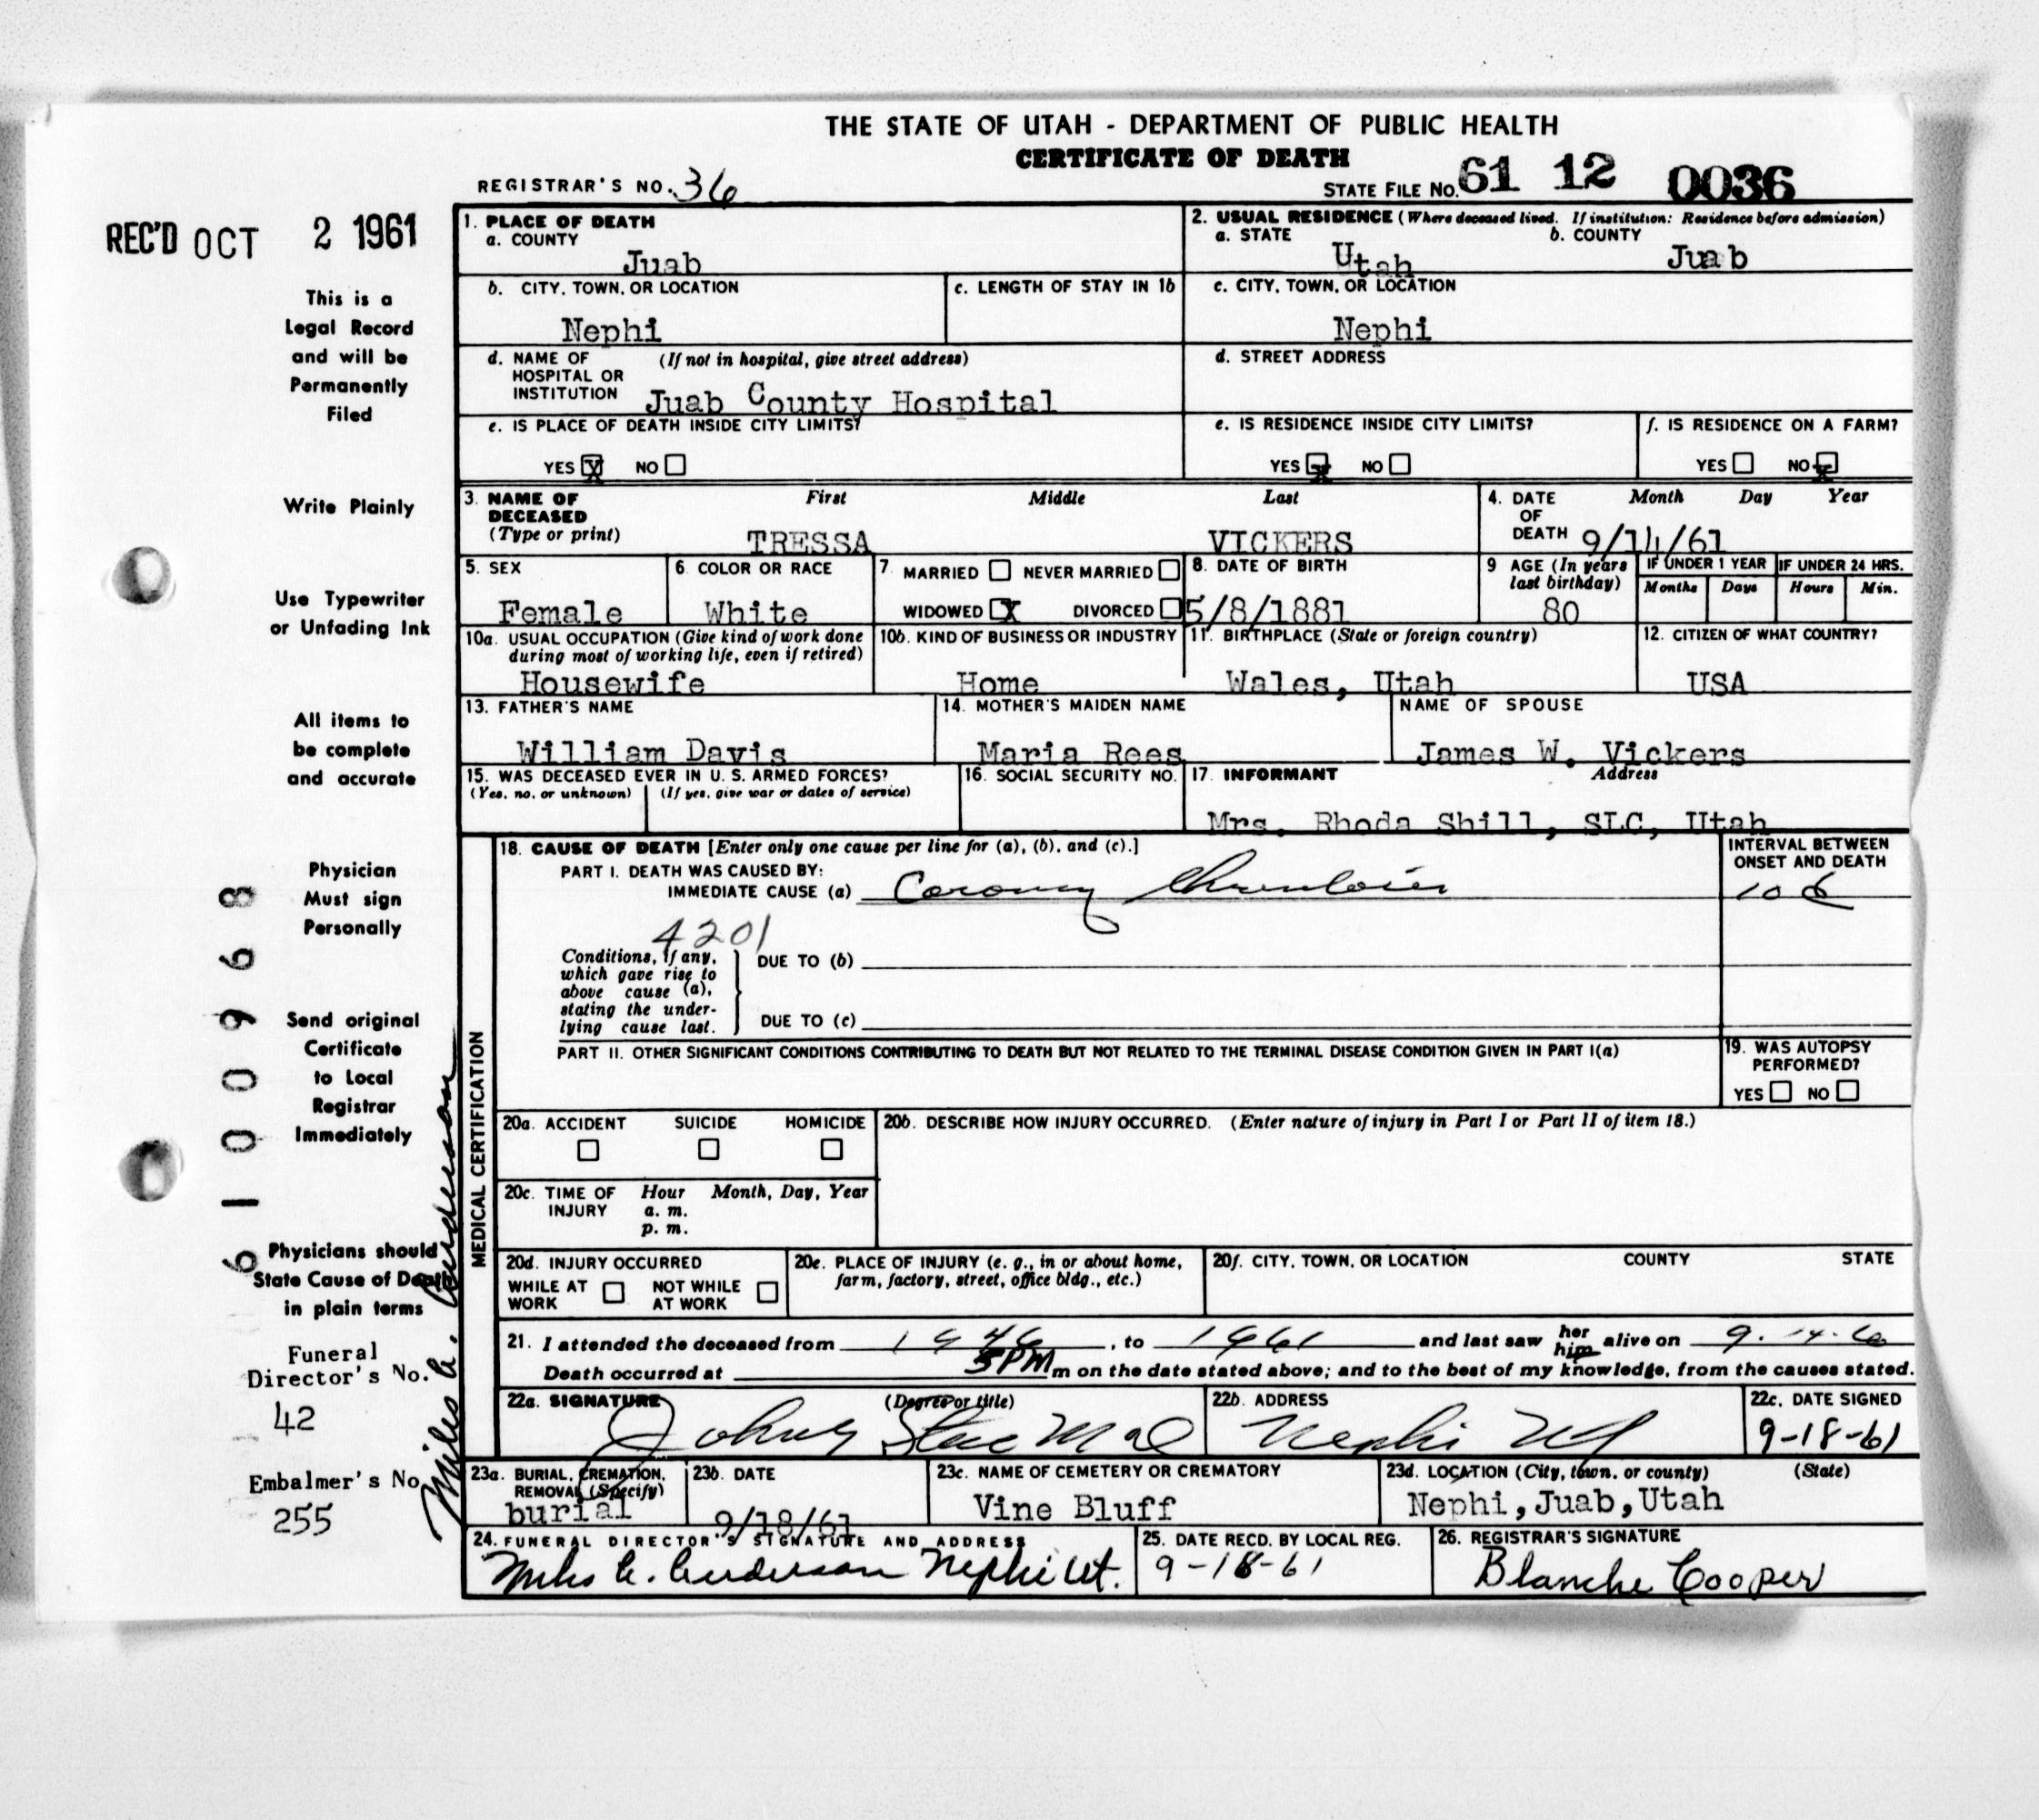 THE STATE OF UTAH - DEPARTMENT OF PUBLIC HEALTH
CERTIFICATE OF DEATH
REGISTRAR'S NO. 36
STATE FILE NO. 61 12 0036
REC'D OCT 2 1961
This is a
Legal Record
and will be
Permanently
Filed
Write Plainly
Use Typewriter
or Unfading Ink
All items to
be complete
and accurate
Physician
Must sign
Personally
Send original
Certificate
to Local
Registrar
Immediately
Physicians should
State Cause of Death
in plain terms
Funeral
Director's No.
42
Embalmer's No.
255
6100968
Miles A. Anderson
1. PLACE OF DEATH
a. COUNTY
Juab
2. USUAL RESIDENCE (Where deceased lived. If institution: Residence before admission)
a. STATE b. COUNTY
Utah Juab
b. CITY, TOWN, OR LOCATION
Nephi
c. LENGTH OF STAY IN 1b
c. CITY, TOWN, OR LOCATION
Nephi
d. NAME OF (If not in hospital, give street address)
HOSPITAL OR
INSTITUTION Juab County Hospital
d. STREET ADDRESS
e. IS PLACE OF DEATH INSIDE CITY LIMITS?
YES X NO
e. IS RESIDENCE INSIDE CITY LIMITS?
YES X NO
f. IS RESIDENCE ON A FARM?
YES NO X
3. NAME OF First Middle Last
DECEASED
(Type or print) TRESSA VICKERS
4. DATE Month Day Year
OF
DEATH 9/14/61
5. SEX
Female
6. COLOR OR RACE
White
7. MARRIED NEVER MARRIED
WIDOWED X DIVORCED
8. DATE OF BIRTH
5/8/1881
9 AGE (In years
last birthday)
80
IF UNDER 1 YEAR
Months Days
IF UNDER 24 HRS.
Hours Min.
10a. USUAL OCCUPATION (Give kind of work done
during most of working life, even if retired)
Housewife
10b. KIND OF BUSINESS OR INDUSTRY
Home
11. BIRTHPLACE (State or foreign country)
Wales, Utah
12. CITIZEN OF WHAT COUNTRY?
USA
13. FATHER'S NAME
William Davis
14. MOTHER'S MAIDEN NAME
Maria Rees
NAME OF SPOUSE
James W. Vickers
15. WAS DECEASED EVER IN U. S. ARMED FORCES?
(Yes, no, or unknown) (If yes, give war or dates of service)
16. SOCIAL SECURITY NO.
17. INFORMANT Address
Mrs. Rhoda Shill, SLC, Utah
MEDICAL CERTIFICATION
18. CAUSE OF DEATH [Enter only one cause per line for (a), (b), and (c).]
PART I. DEATH WAS CAUSED BY:
IMMEDIATE CAUSE (a) Coronary
INTERVAL BETWEEN
ONSET AND DEATH
10
4201
Conditions, if any,
which gave rise to
above cause (a),
stating the under-
lying cause last.
DUE TO (b)
DUE TO (c)
PART II. OTHER SIGNIFICANT CONDITIONS CONTRIBUTING TO DEATH BUT NOT RELATED TO THE TERMINAL DISEASE CONDITION GIVEN IN PART I(a)
19. WAS AUTOPSY
PERFORMED?
YES NO
20a. ACCIDENT SUICIDE HOMICIDE
20b. DESCRIBE HOW INJURY OCCURRED. (Enter nature of injury in Part I or Part II of item 18.)
20c. TIME OF Hour Month, Day, Year
INJURY a. m.
p. m.
20d. INJURY OCCURRED
WHILE AT NOT WHILE
WORK AT WORK
20e. PLACE OF INJURY (e. g., in or about home,
farm, factory, street, office bldg., etc.)
20f. CITY, TOWN, OR LOCATION COUNTY STATE
21. I attended the deceased from 1946, to 1961 and last saw her him alive on 9.14.6
Death occurred at 5PM m on the date stated above; and to the best of my knowledge, from the causes stated.
22a. SIGNATURE (Degree or title)
22b. ADDRESS
Nephi
22c. DATE SIGNED
9-18-61
23a. BURIAL, CREMATION,
REMOVAL (Specify)
burial
23b. DATE
9/18/61
23c. NAME OF CEMETERY OR CREMATORY
Vine Bluff
23d. LOCATION (City, town, or county) (State)
Nephi, Juab, Utah
24. FUNERAL DIRECTOR'S SIGNATURE AND ADDRESS
Miles A. Anderson Nephi Ut.
25. DATE RECD. BY LOCAL REG.
9-18-61
26. REGISTRAR'S SIGNATURE
Blanche Cooper